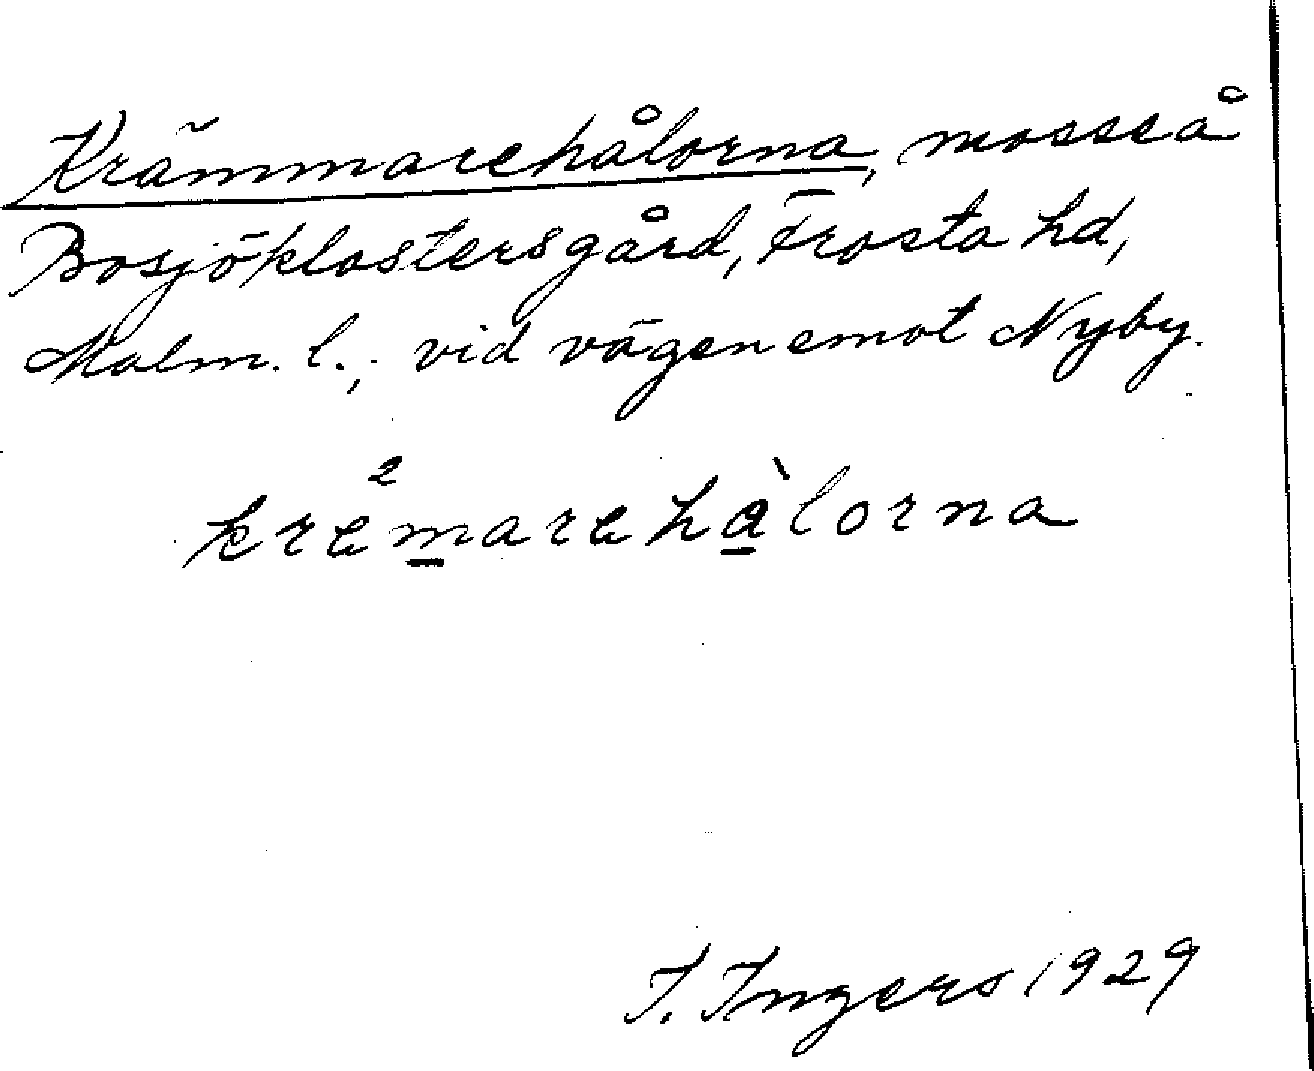 Krämmarehålorna, mosse å
Bosjöklostersgård, Frosta hd,
Malm. l., vid vägen emot Nyby.
I. Ingers 1929